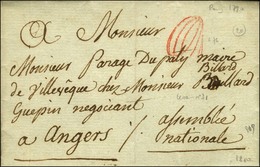 A Monsieur
Monsieur parage Du paty maire
Billard
de villevêque chez Monsieur
Guespin negociant
a angers / assemblée
nationale